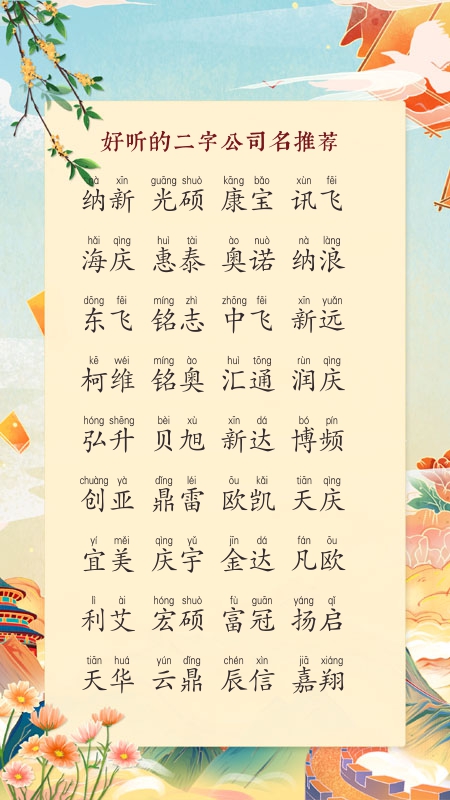 好听的二字公司名推荐
nà xīn guāng shuò kāng bǎo xùn fēi
纳新 光硕 康宝 讯飞
hǎi qìng huì tài ào nuò nà làng
海庆 惠泰 奥诺 纳浪
dōng fēi míng zhì zhōng fēi xīn yuǎn
东飞 铭志 中飞 新远
kē wéi míng ào huì tōng rùn qìng
柯维 铭奥 汇通 润庆
hóng shēng bèi xù xīn dá bó pín
弘升 贝旭 新达 博频
chuàng yà dǐng léi ōu kǎi tiān qìng
创亚 鼎雷 欧凯 天庆
yí měi qìng yǔ jīn dá fán ōu
宜美 庆宇 金达 凡欧
lì ài hóng shuò fù guān yáng qǐ
利艾 宏硕 富冠 扬启
tiān huá yún dǐng chén xìn jiā xiáng
天华 云鼎 辰信 嘉翔